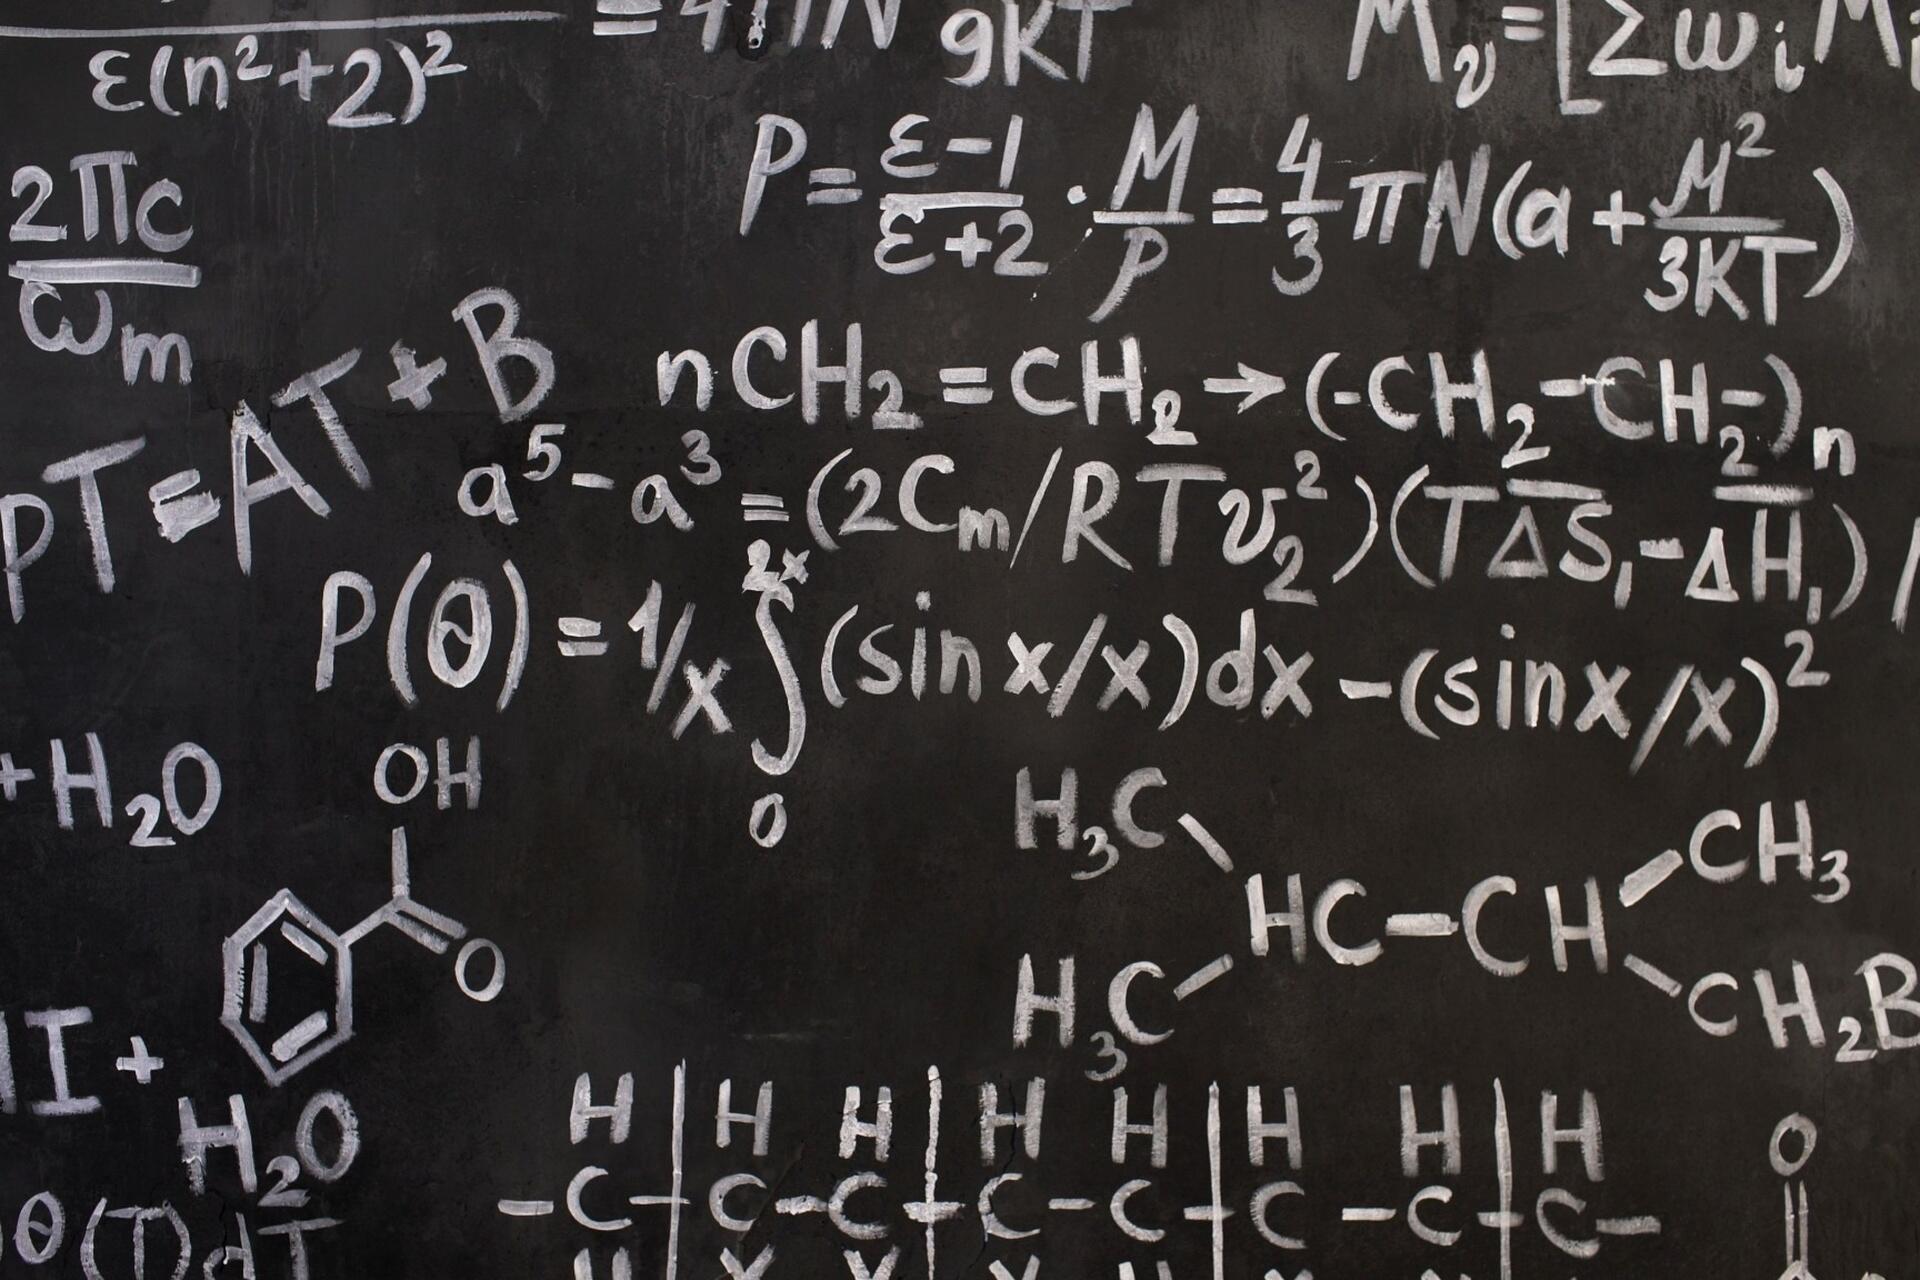 ε(n²+2)²
9KT
M_v=[Σω_i M_i
P = (ε-1)/(ε+2) · M/P = 4/3 πN(a + M²/3KT)
2πc/ω_m
PT=AT+B
nCH₂=CH₂→(-CH₂-CH₂-)n
a⁵-a³=(2Cm/RTv₂²)(TΔS₁-ΔH₁)
P(θ)=1/x ∫₀²ˣ(sin x/x)dx-(sinx/x)²
+H₂O
OH
O
H₃C
CH₃
HC-CH
H₃C
CH₂B
I+
H₂O
H H H H H H H H
-C-C-C-C-C-C-C-C-
O
θ(T)dT